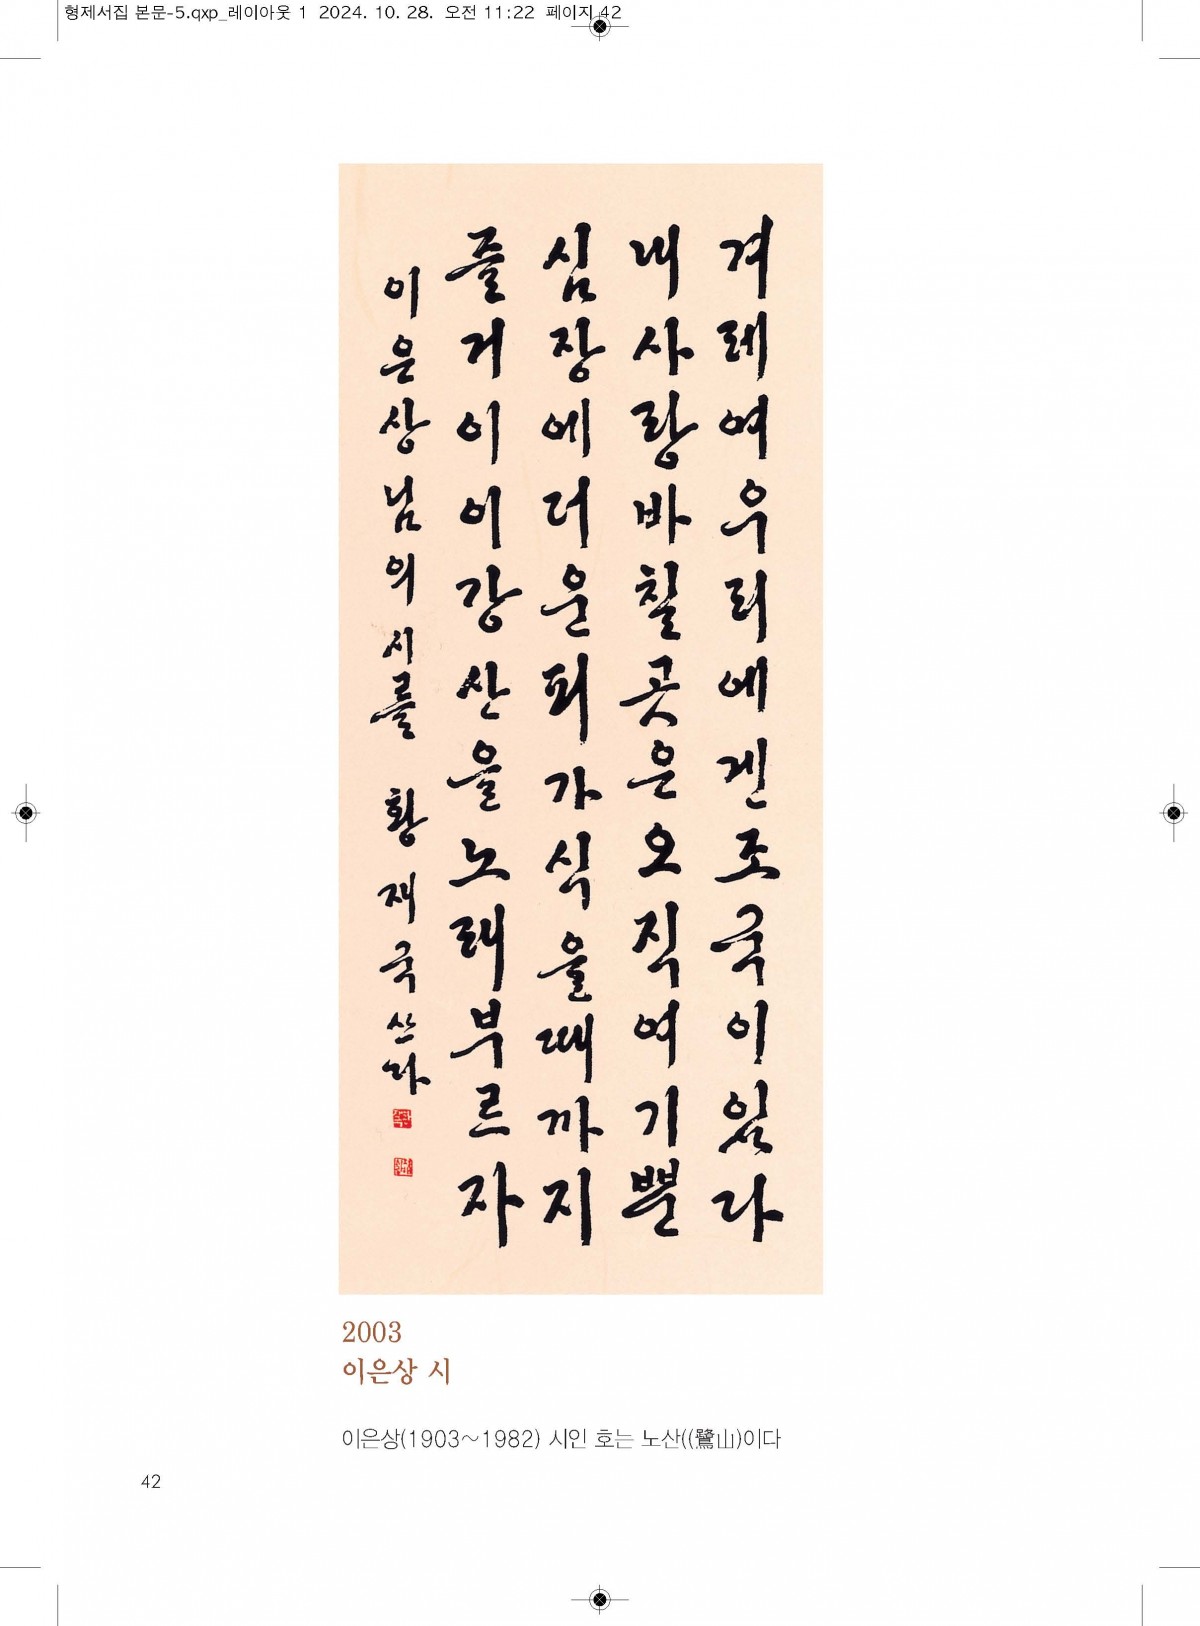 형제서집 본문-5.qxp_레이아웃 1 2024. 10. 28. 오전 11:22 페이지 42
겨레여우리에겐조국이있다
내사랑바칠곳은오직여기뿐
심장에더운피가식을때까지
즐거이이강산을노래부르자
이은상님의시를 황재국쓰다
2003
이은상 시
이은상(1903~1982) 시인 호는 노산((鷺山)이다
42